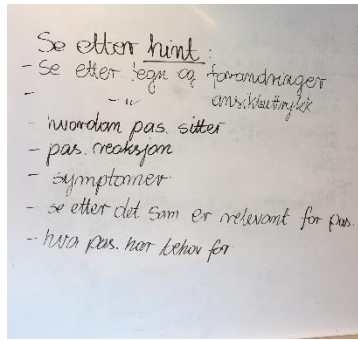 Se etter hint:
- Se etter tegn og forandringer
- -"- ansiktsuttrykk
- hvordan pas. sitter
- pas. reaksjon
- symptomer
- se etter det som er relevant for pas.
- hva pas. har behov for